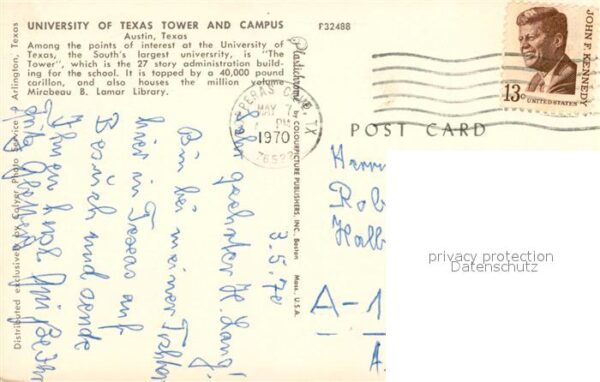 UNIVERSITY OF TEXAS TOWER AND CAMPUS
Austin, Texas
Among the points of interest at the University of
Texas, the South's largest universrity, is "The
Tower", which is the 27 story administration build-
ing for the school. It is topped by a 40,000 pound
carillon, and also houses the million volume
Mirabeau B. Lamar Library.
P32488
Distributed exclusively by Colyer Photo Service, Arlington, Texas
Plastichrome by COLOURPICTURE PUBLISHERS, INC. Boston Mass. U.S.A.
COPPERAS COVE TX
MAY 7
PM
1970
JOHN F. KENNEDY
13c
UNITED STATES
POST CARD
3.5.70
Sehr geehrter H. Lang!
Bin bei meiner Tochter
hier in Texas auf
Besuch und sende
Ihnen
Herrn
Rob
Hallb
A-1
A.
privacy protection
Datenschutz